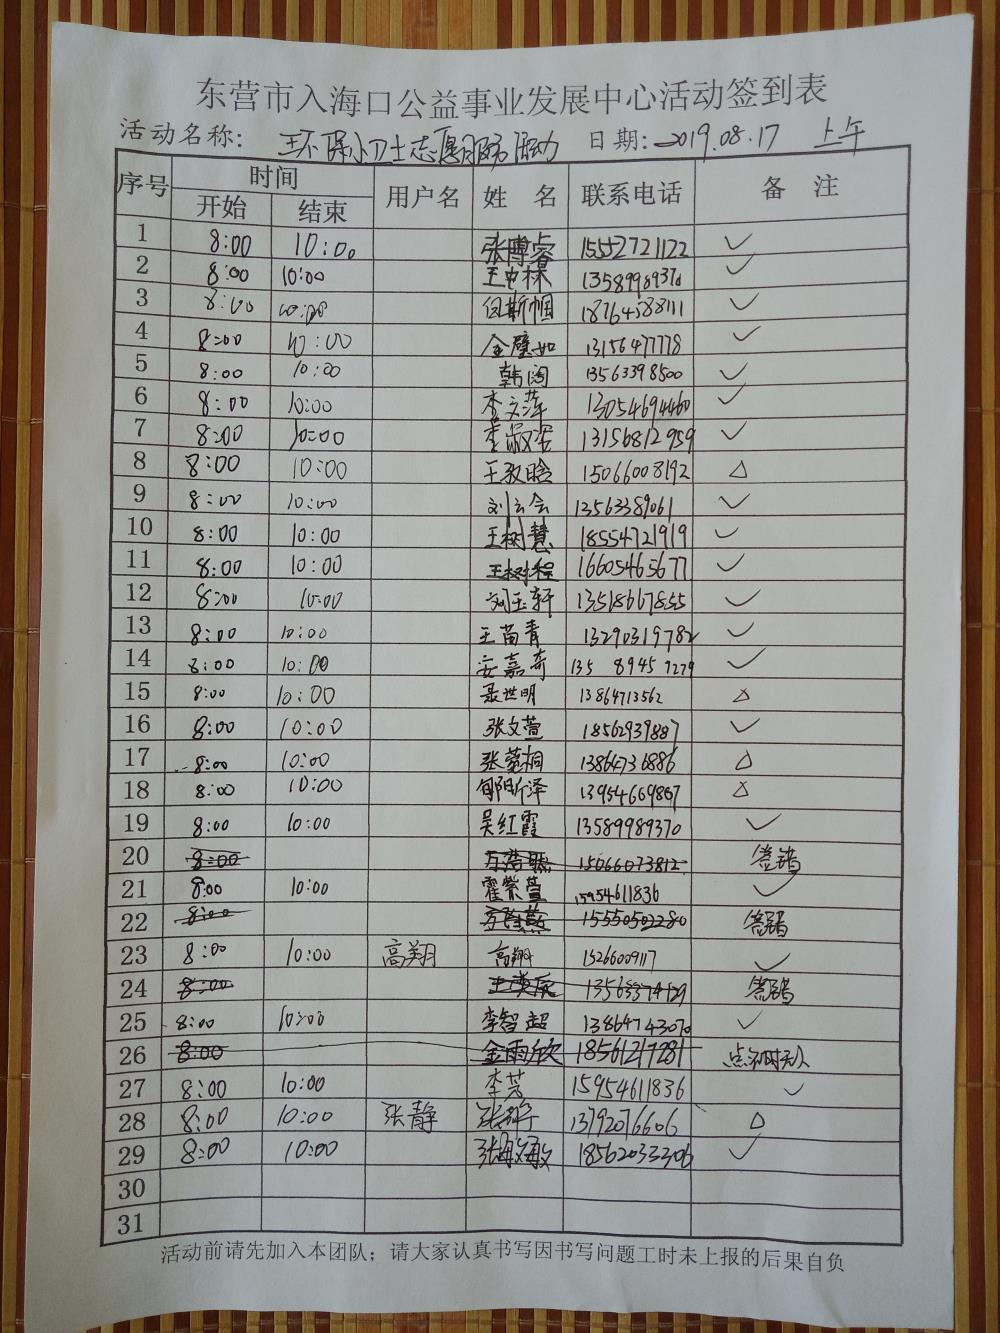 东营市入海口公益事业发展中心活动签到表
活动名称: 环保小卫士志愿服务活动 日期: 2019.08.17 上午
序号 时间 用户名 姓 名 联系电话 备 注
开始 结束
1 8:00 10:00 张博睿 15552721122 ✓
2 8:00 10:00 王中林 13589989370 ✓
3 8:00 10:00 18764588111 ✓
4 8:00 10:00 金璧如 13156477778 ✓
5 8:00 10:00 韩闵 13563398500 ✓
6 8:00 10:00 李文萍 13054694460 ✓
7 8:00 10:00 李淑安 13156812959 ✓
8 8:00 10:00 王孜晗 15066008192 △
9 8:00 10:00 刘云会 13563389061 ✓
10 8:00 10:00 王树慧 18554721919 ✓
11 8:00 10:00 王树程 16605465677 ✓
12 8:00 10:00 刘玉轩 13518667855 ✓
13 8:00 10:00 王苗青 13290319782 ✓
14 8:00 10:00 安嘉奇 135 8945 7279 ✓
15 8:00 10:00 聂世明 13864713562 △
16 8:00 10:00 张文萱 18562939887 ✓
17 8:00 10:00 张蓥桐 13864736886 △
18 8:00 10:00 郇昕泽 13954669867 △
19 8:00 10:00 吴红霞 13589989370 ✓
20 8:00 15066073812 签错
21 8:00 10:00 霍紫萱 15954611836 ✓
22 8:00 15550502280 签错
23 8:00 10:00 高翔 高翔 15266009117 ✓
24 8:00 13563374129 签错
25 8:00 10:00 李智超 13864743070 ✓
26 8:00 金雨欣 18561217281 点名时无人
27 8:00 10:00 李芳 15954611836 ✓
28 8:00 10:00 张静 张静 13792076606 △
29 8:00 10:00 张敏敏 18562033306 ✓
30
31
活动前请先加入本团队；请大家认真书写因书写问题工时未上报的后果自负